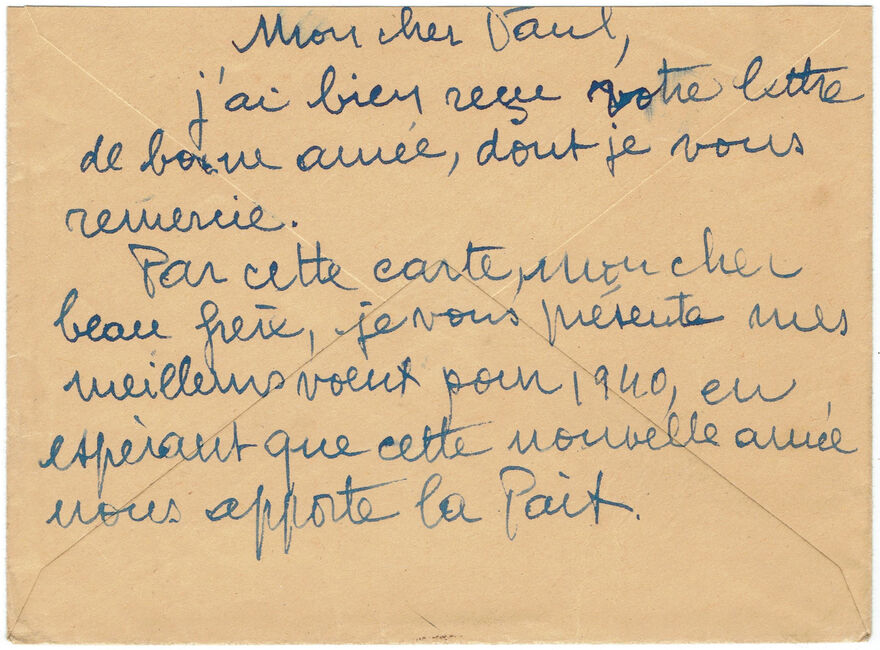 Mon cher Paul,
j'ai bien reçu votre lettre
de bonne année, dont je vous
remercie.
Par cette carte, mon cher
beau frère, je vous présente mes
meilleurs voeux pour 1940, en
espérant que cette nouvelle année
nous apporte la Paix.